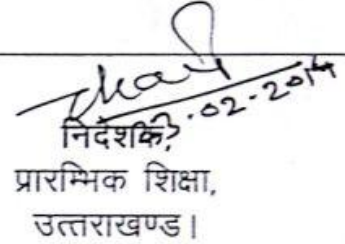 02-2014
निदेशक,
प्रारम्भिक शिक्षा,
उत्तराखण्ड।